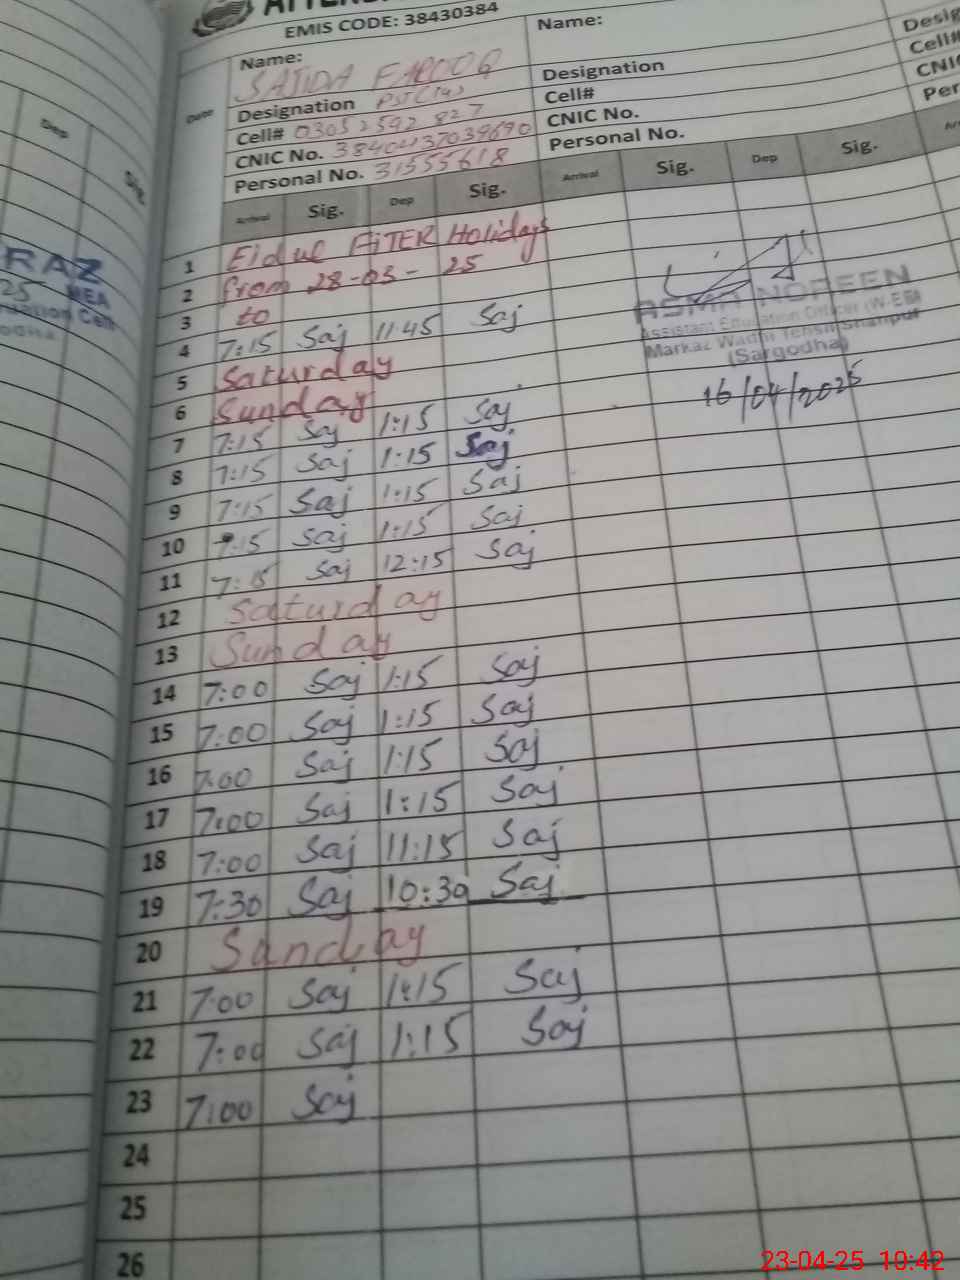 EMIS CODE: 38430384
Name: Name:
SAJIDA FAROOQ
Designation PST(14) Designation
Cell# 03052592827 Cell# Cell#
CNIC No. CNIC No.
Personal No. 31555618 Personal No.
Date Arrival Sig. Dep Sig. Arrival Sig. Dep Sig.
Dep Sig.
1 Eid ul FiTER Holidays
2 from 28-03-25
3 to
4 7:15 Saj 11:45 Saj
5 Saturday
6 Sunday
7 7:15 Saj 1:15 Saj
8 7:15 Saj 1:15 Saj
9 7:15 Saj 1:15 Saj
10 7:15 Saj 1:15 Saj
11 7:15 Saj 12:15 Saj
12 Saturday
13 Sunday
14 7:00 Saj 1:15 Saj
15 7:00 Saj 1:15 Saj
16 7:00 Saj 1:15 Saj
17 7:00 Saj 1:15 Saj
18 7:00 Saj 11:15 Saj
19 7:30 Saj 10:30 Saj
20 Sunday
21 7:00 Saj 1:15 Saj
22 7:00 Saj 1:15 Saj
23 7:00 Saj
24
25
26
ASMA NOREEN
Assistant Education Officer (W-EE)
Markaz Wadhi Tehsil Shahpur
(Sargodha)
16/04/2025
RAZ
25 MEA
Cell
23-04-25 10:42